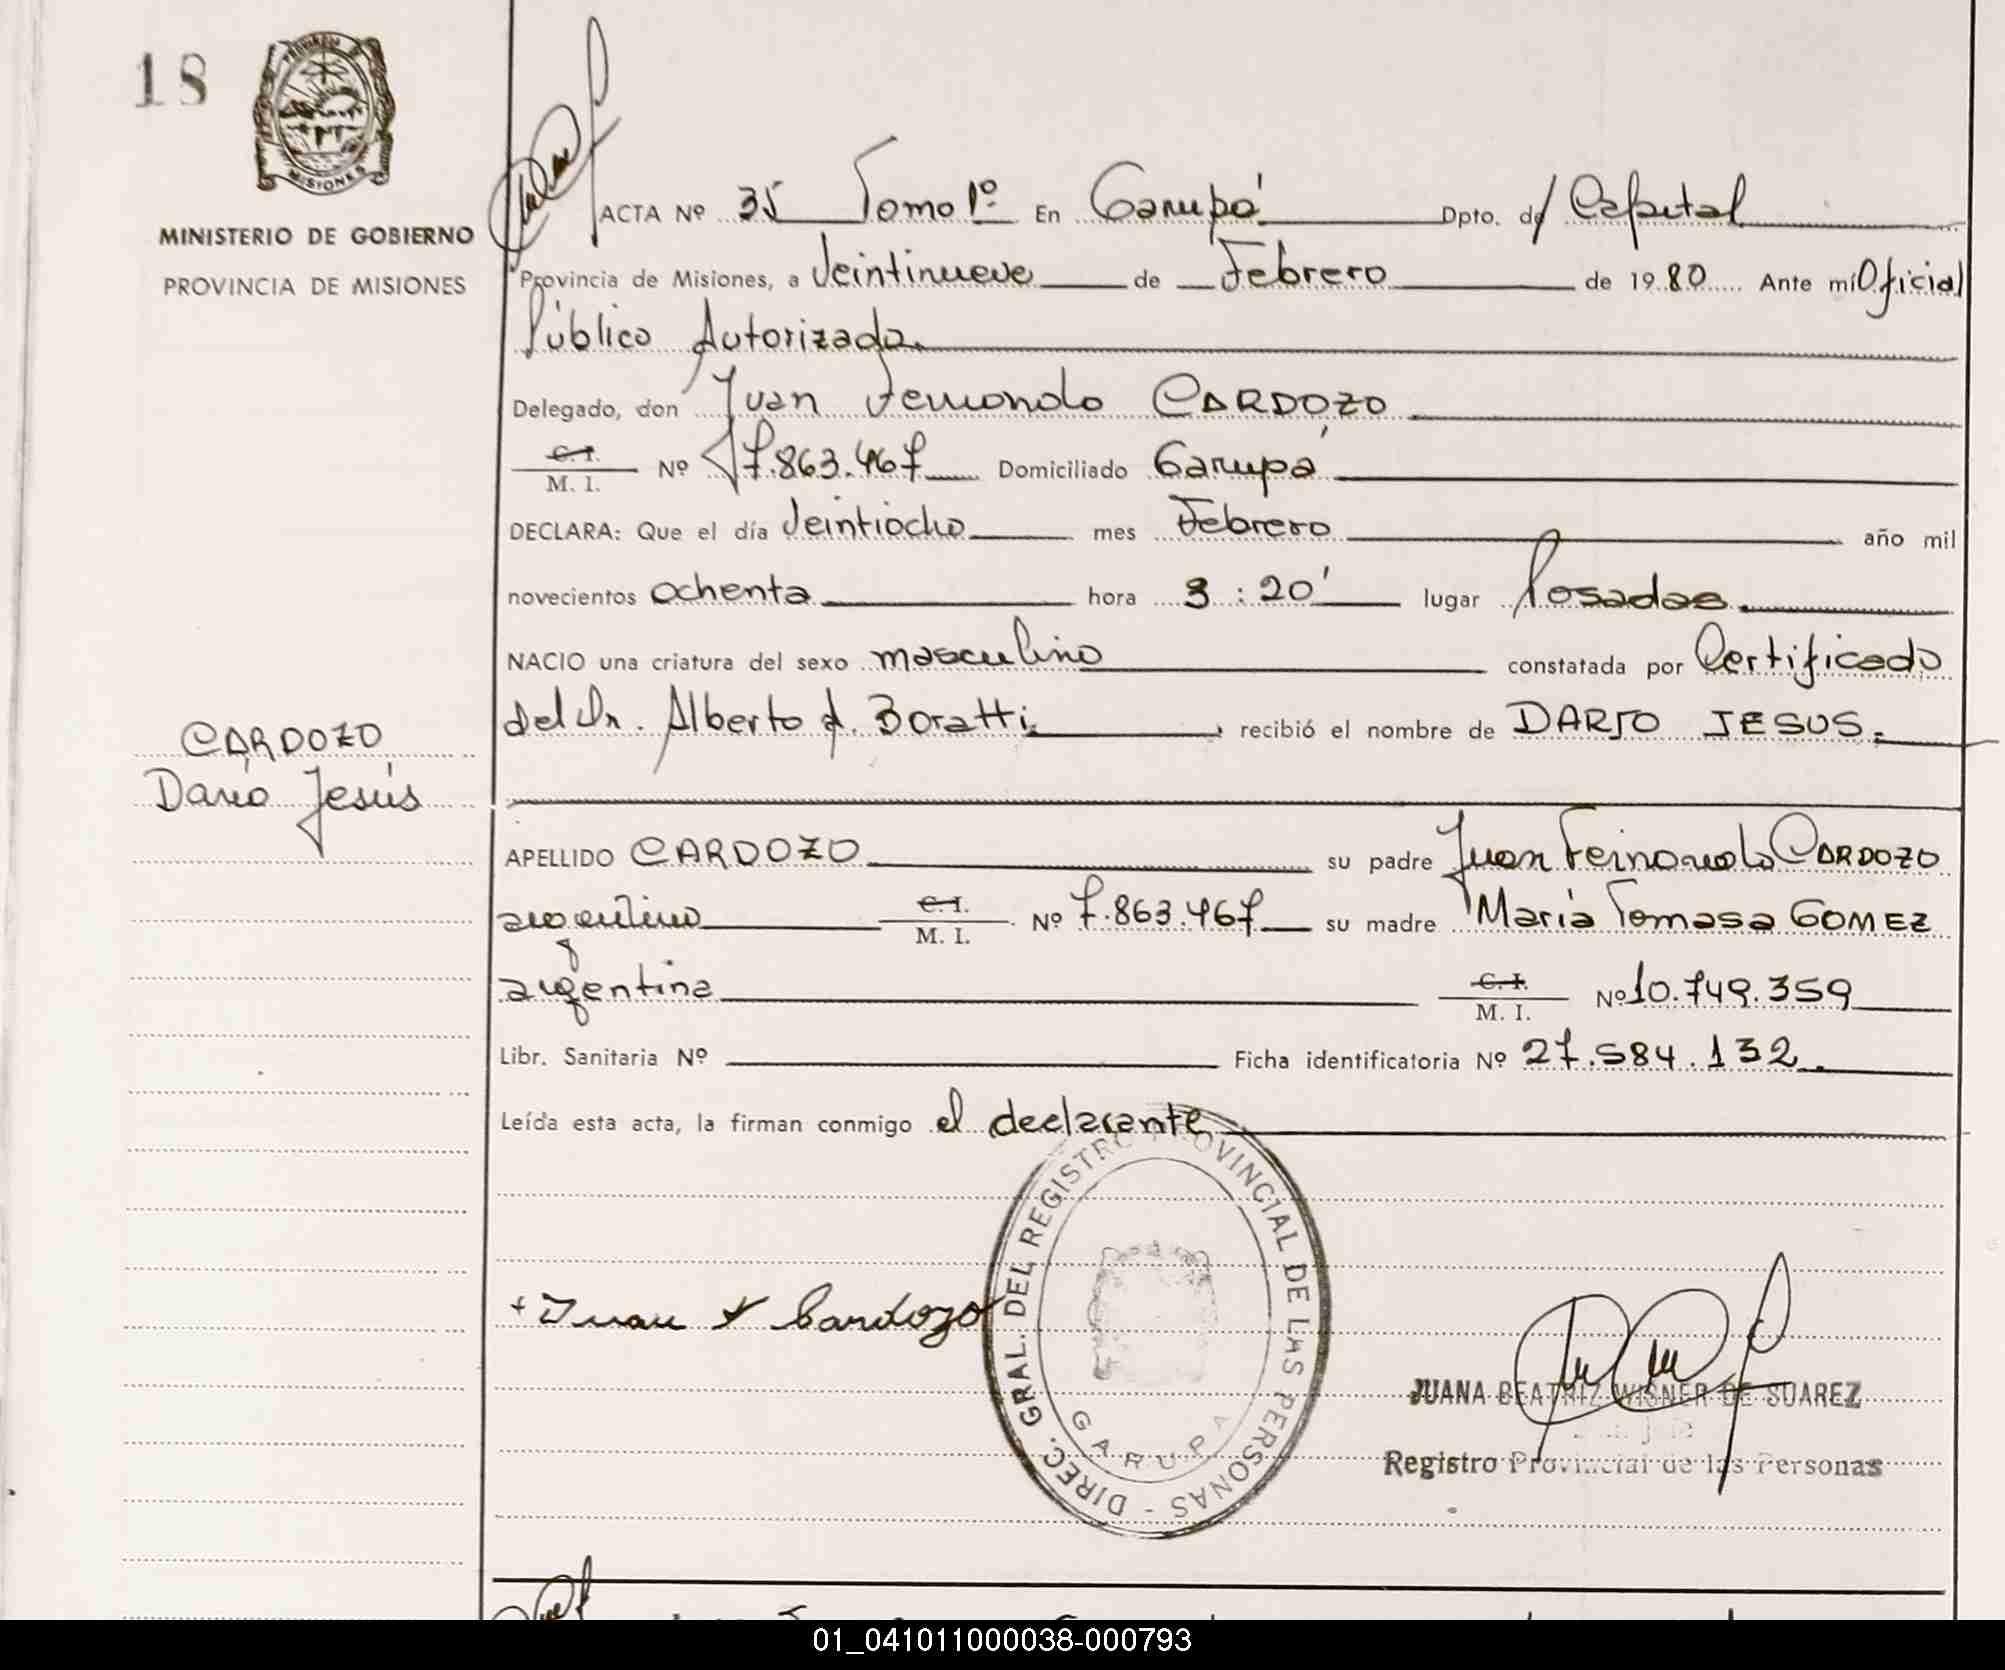 18
PROVINCIA DE
MISIONES
MINISTERIO DE GOBIERNO
PROVINCIA DE MISIONES
ACTA Nº 35 Tomo 1º En Garupá Dpto. de Capital
Provincia de Misiones, a Veintinueve de Febrero de 1980 Ante mí Oficial
Público Autorizada.
Delegado, don Juan Fernando CARDOZO
C. I.
M. I. Nº 7.863.467 Domiciliado Garupá
DECLARA: Que el día Veintiocho mes Febrero año mil
novecientos ochenta hora 3:20' lugar Posadas.
NACIO una criatura del sexo masculino constatada por Certificado
del Dr. Alberto A. Boratti, recibió el nombre de DARIO JESUS.
CARDOZO
Darío Jesús
APELLIDO CARDOZO su padre Juan Fernando CARDOZO
argentino C. I. M. I. Nº 7.863.467 su madre María Tomasa GOMEZ
argentina C. I. M. I. Nº 10.749.359
Libr. Sanitaria Nº Ficha identificatoria Nº 27.584.132.
Leída esta acta, la firman conmigo el declarante
DIREC. GRAL. DEL REGISTRO PROVINCIAL DE LAS PERSONAS -
GARUPA
+ Juan F Cardozo
JUANA BEATRIZ WISNER DE SUAREZ
Registro Provincial de las Personas
01_041011000038-000793